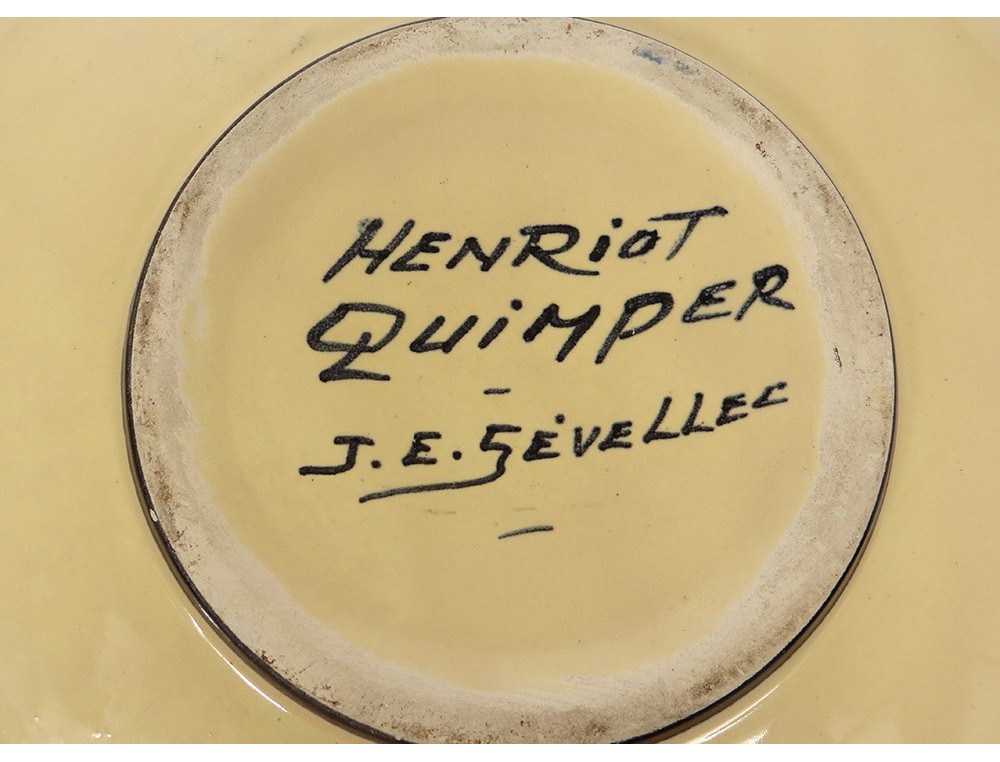 HENRiOT
QUiMPER
-
J. E. SÉVELLEC
-